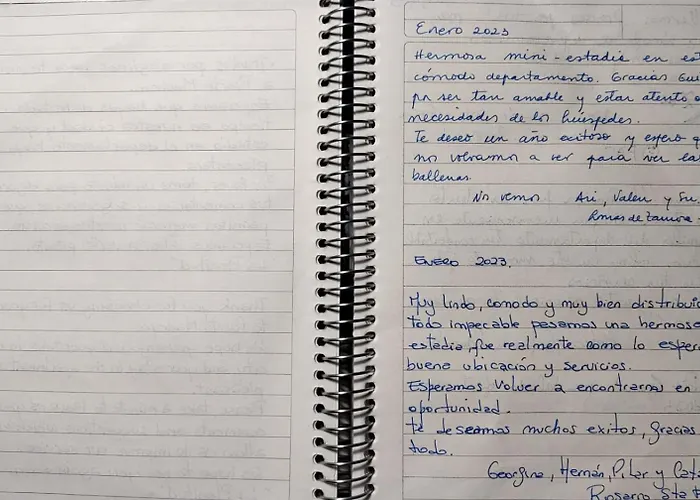 Enero 2023
Hermosa mini-estadia en
cómodo departamento. Gracias
por ser tan amable y estar atento
necesidades de los huéspedes.
Te deseo un año exitoso y espero
nos volvamos a ver para ver
ballenas
Nos vemos Ari, Valen y
Lomas de Zamora
ENERO 2023.
Muy lindo, comodo y muy bien
todo impecable pasamos una
estadia, fue realmente como lo
buena ubicación y servicios.
Esperamos volver a encontrarnos en
oportunidad.
te deseamos muchos exitos, gracias
todo.
Georgina, Hernán, Pilar y
Rosario